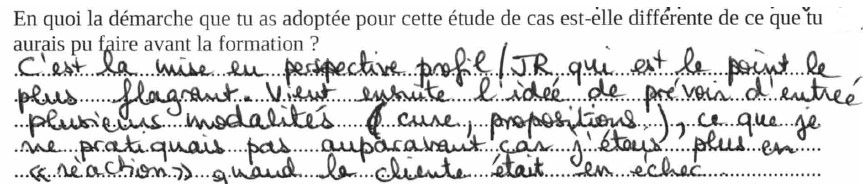 En quoi la démarche que tu as adoptée pour cette étude de cas est-elle différente de ce que tu
aurais pu faire avant la formation ?
C'est la mise en perspective profil/JR qui est le point le
plus flagrant. Vient ensuite l'idée de prévoir d'entrée
plusieurs modalités (cure, propositions), ce que je
ne pratiquais pas auparavant car j'étais plus en
"réaction" quand la cliente était en échec